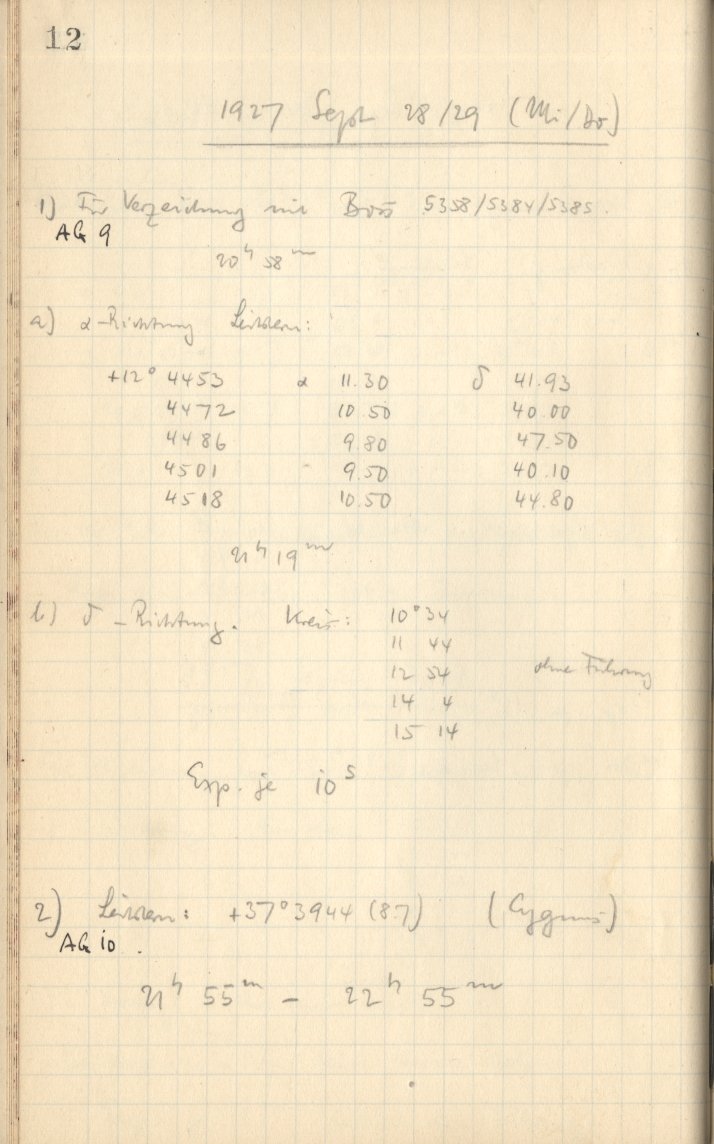 12
1927 Sept 28/29 (Mi/Do)
1) Für Verzeichnung mit Boss 5358/5384/5385.
AG 9
20ʰ 58ᵐ
a) α-Richtung Leitstern:
+12° 4453 α 11.30 δ 41.93
4472 10.50 40.00
4486 9.80 47.50
4501 9.50 40.10
4518 10.50 44.80
21ʰ 19ᵐ
b) δ-Richtung. Kreis: 10°34
11 44
12 54 ohne Führung
14 4
15 14
Exp. je 10ˢ
2) Leitstern: +37°3944 (8.7) (Cygnus)
AG 10.
21ʰ 55ᵐ – 22ʰ 55ᵐ